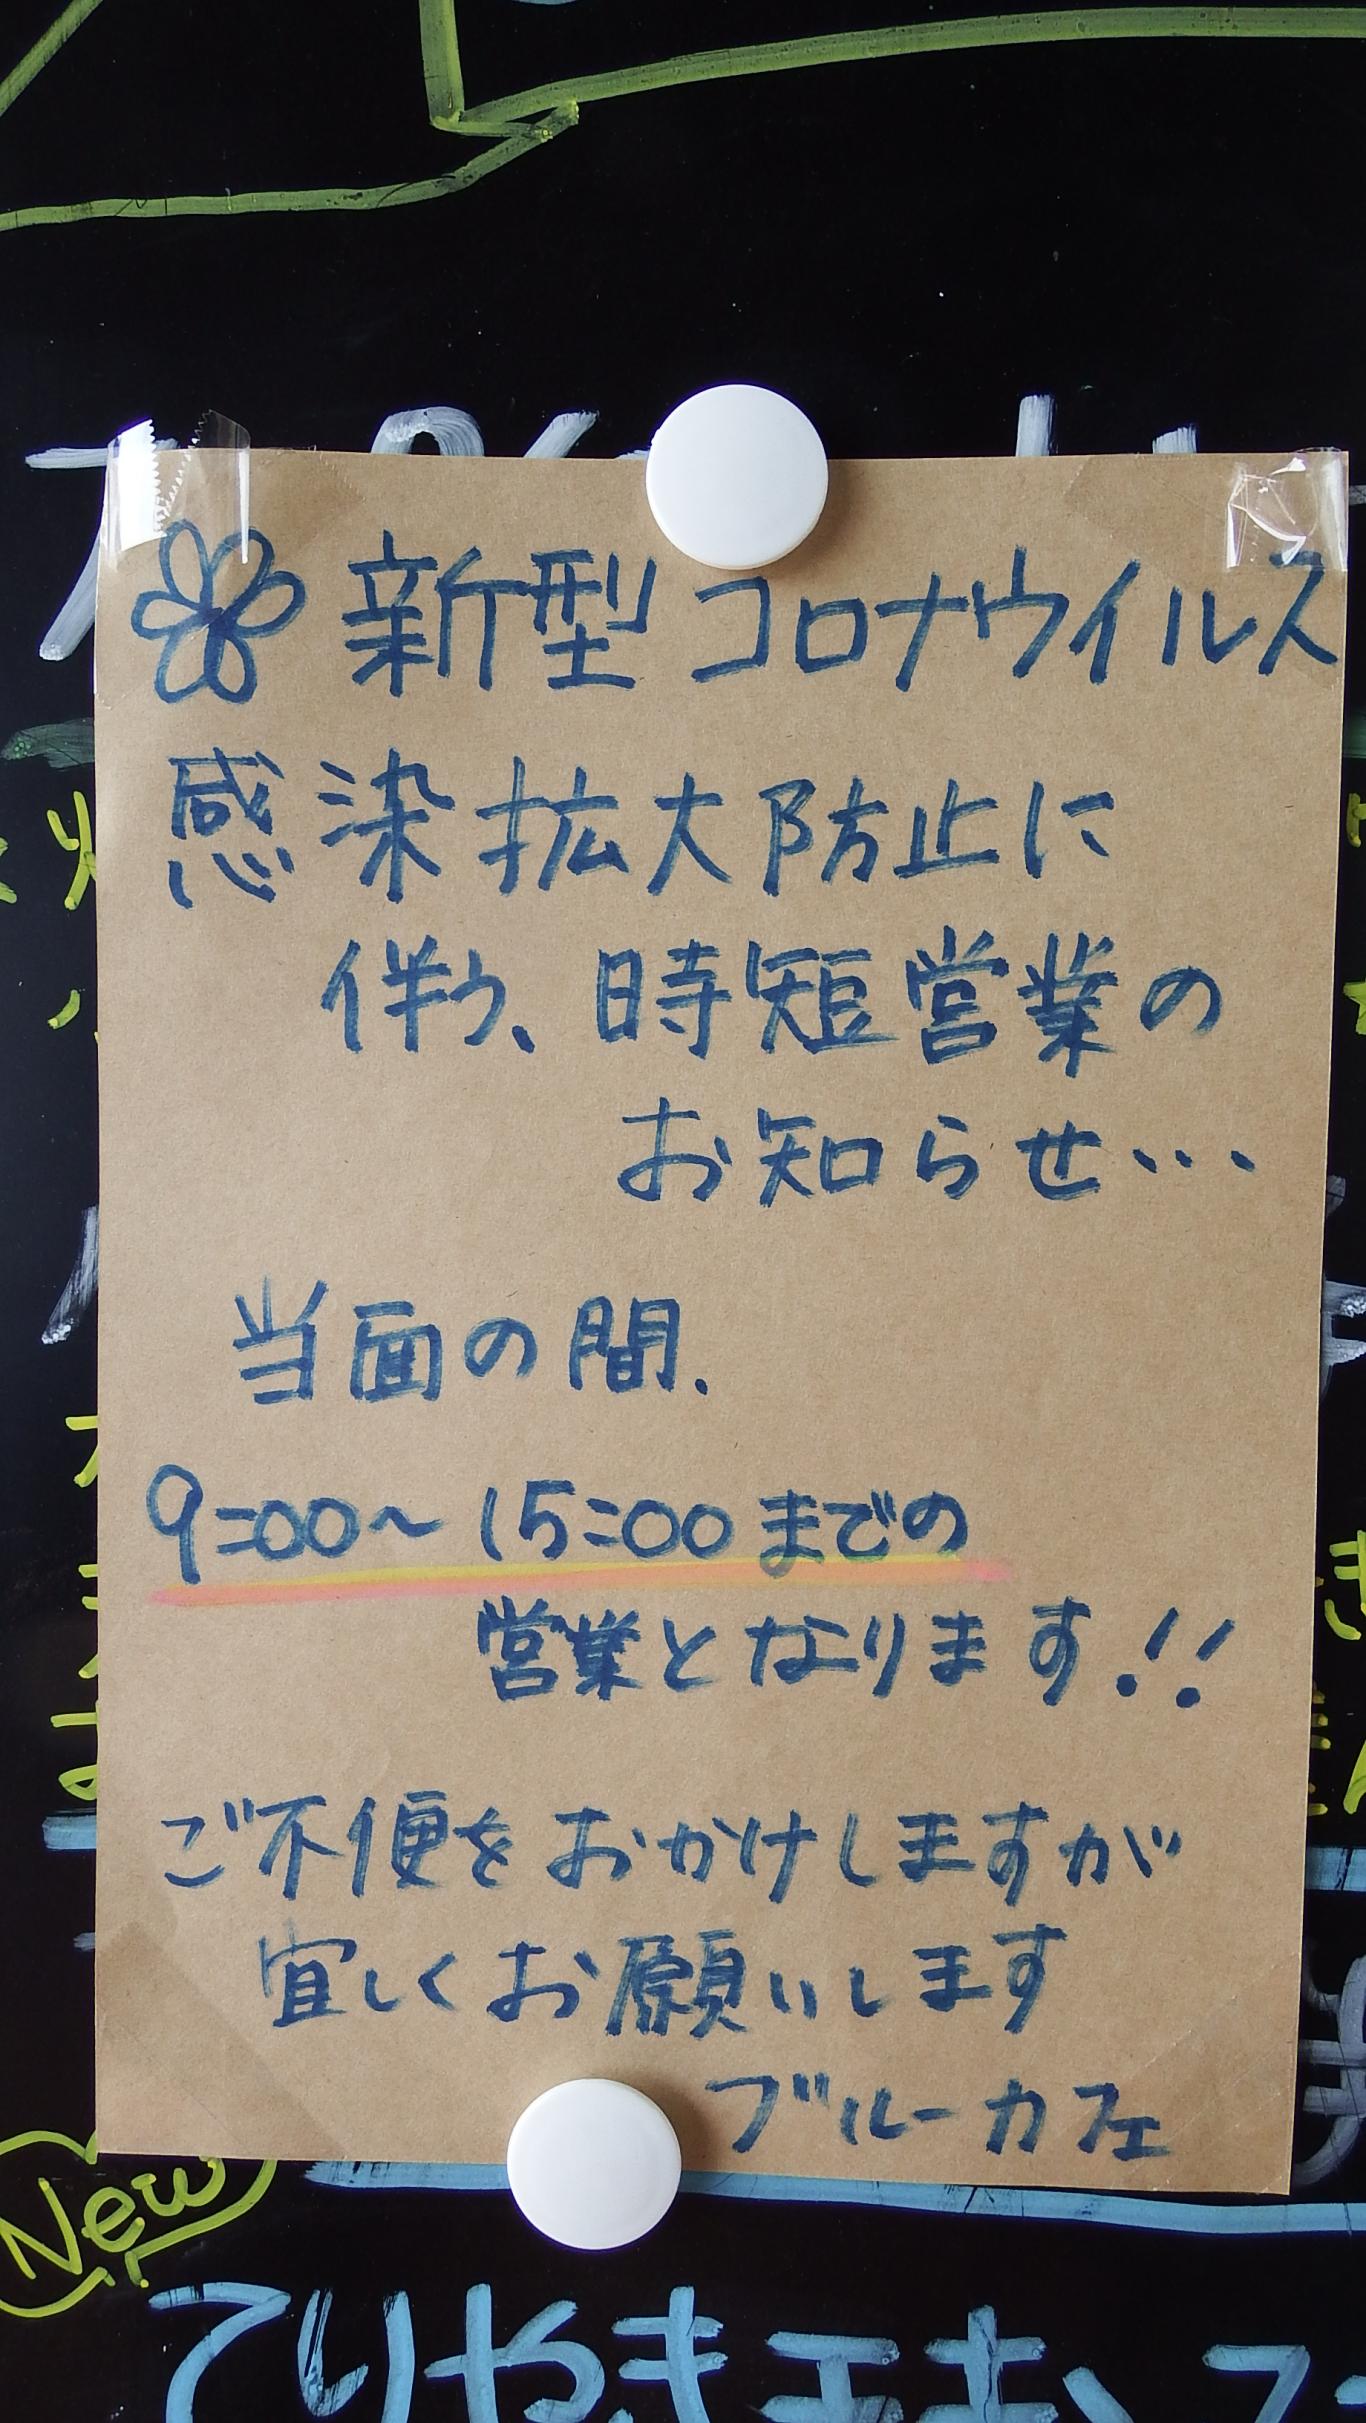 新型コロナウイルス
感染拡大防止に
伴う、時短営業の
お知らせ…
当面の間.
9:00～15:00までの
営業となります!!
ご不便をおかけしますが
宜しくお願いします
ブルーカフェ
New
てりやきチキン